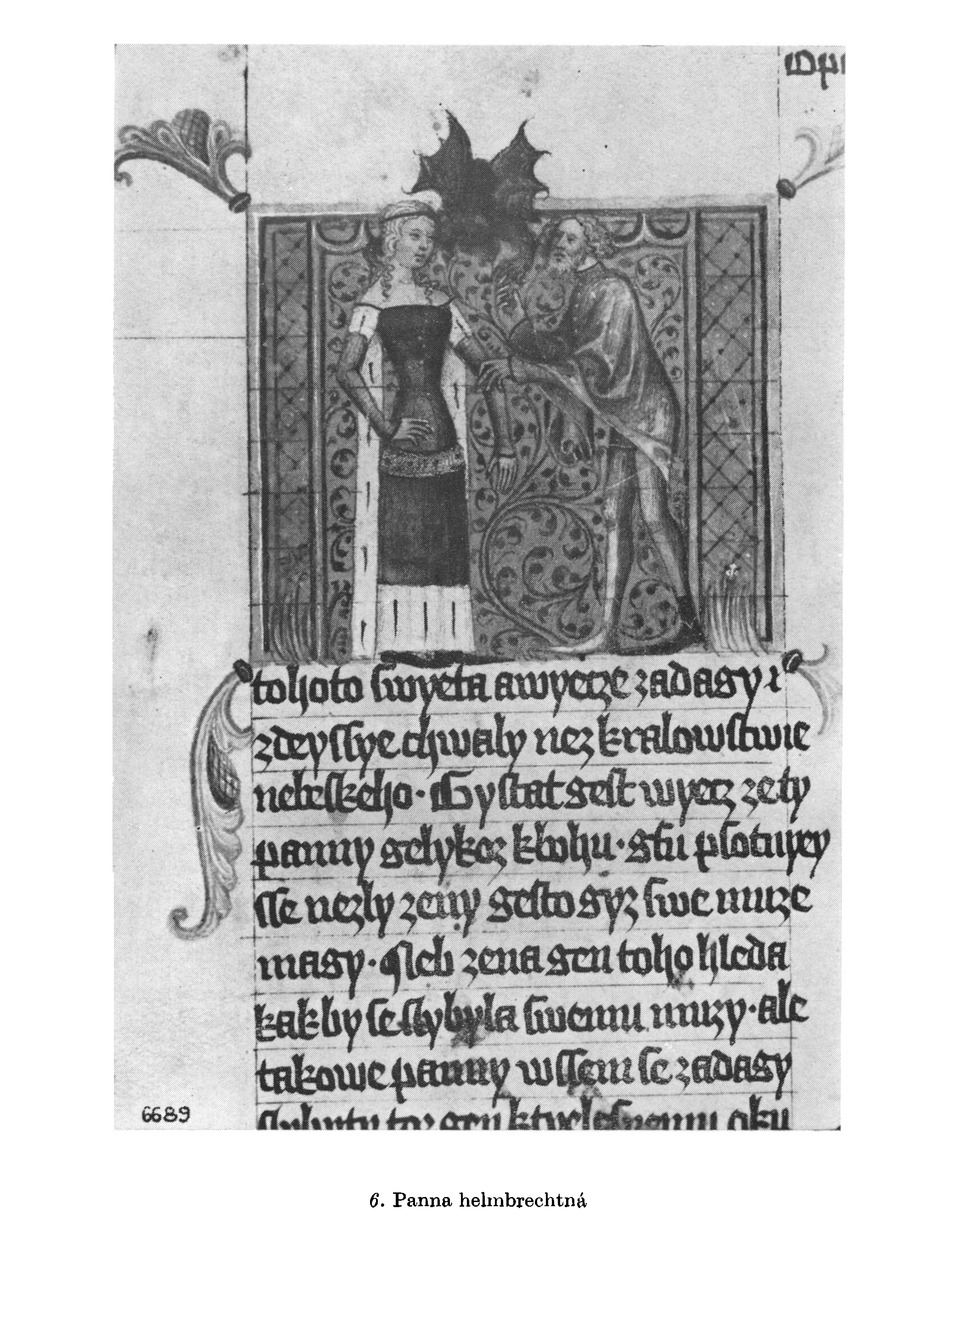 tohoto swyeta awyecze zadagy i
zdeyssye chwaly nez kralowstwie
nebeskeho· Gystat gest wyecz zety
panny gelykoz kbohu· gsu psoturzey
sse nezly zeny gesto gyz swe muze
magy· Neb zena gen toho hleda
kakby se slybyla swemu muzy· ale
takowe panny wssem se zadagy
6689
6. Panna helmbrechtná